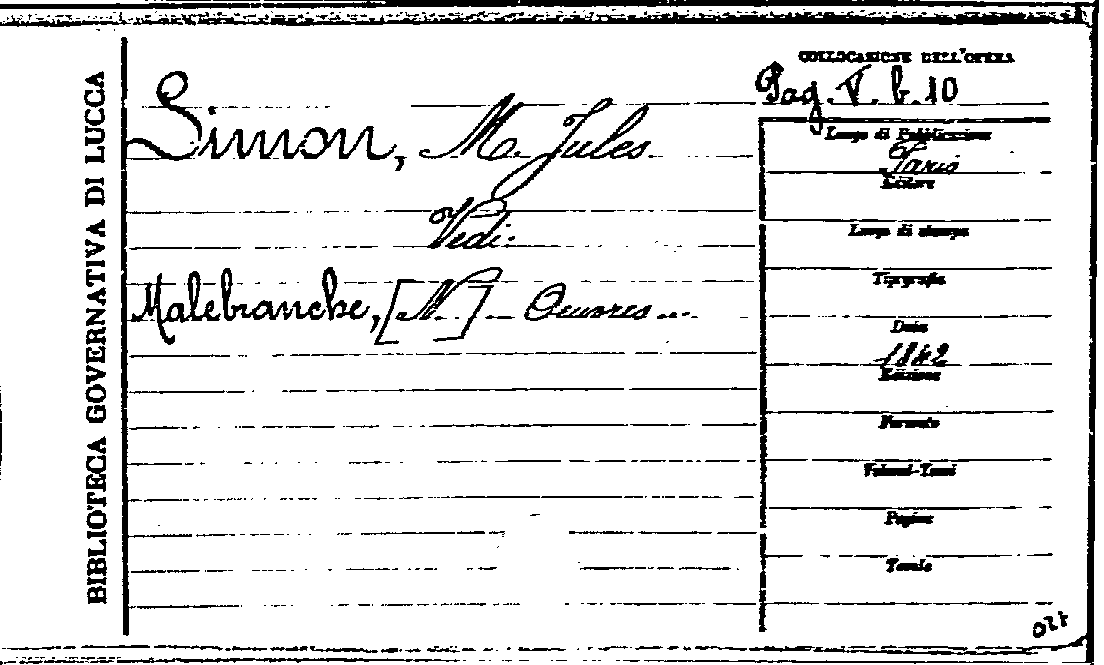 BIBLIOTECA GOVERNATIVA DI LUCCA
Simon, M. Jules
Vedi:
Malebranche, [N] - Oeuvres...
COLLOCAZIONE DELL'OPERA
Pag. V. b. 10
Luogo di Pubblicazione
Paris
Editore
Luogo di stampa
Tipografia
Data
1842
Edizione
Formato
Volumi-Tomi
Pagine
Tavole